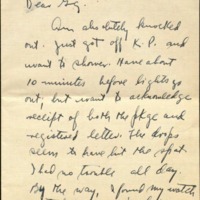 Dear Gg.
Am absolutely knocked
out. Just got off K.P. and
want to shower. Have about
10 minutes before lights go
out, but want to acknowledge
receipt of both the pkge and
registered letter. The drops
seem to have hit the spot.
I had no trouble all day.
By the way, I found my watch